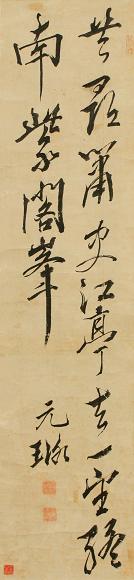 共尋蕭史江亭去一望終
南紫閣峯
元璇